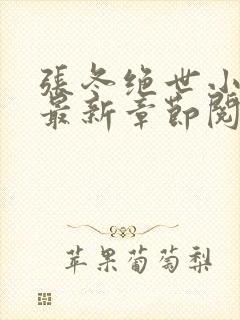 張冬绝世小
最新章節閱
苹果葡萄梨